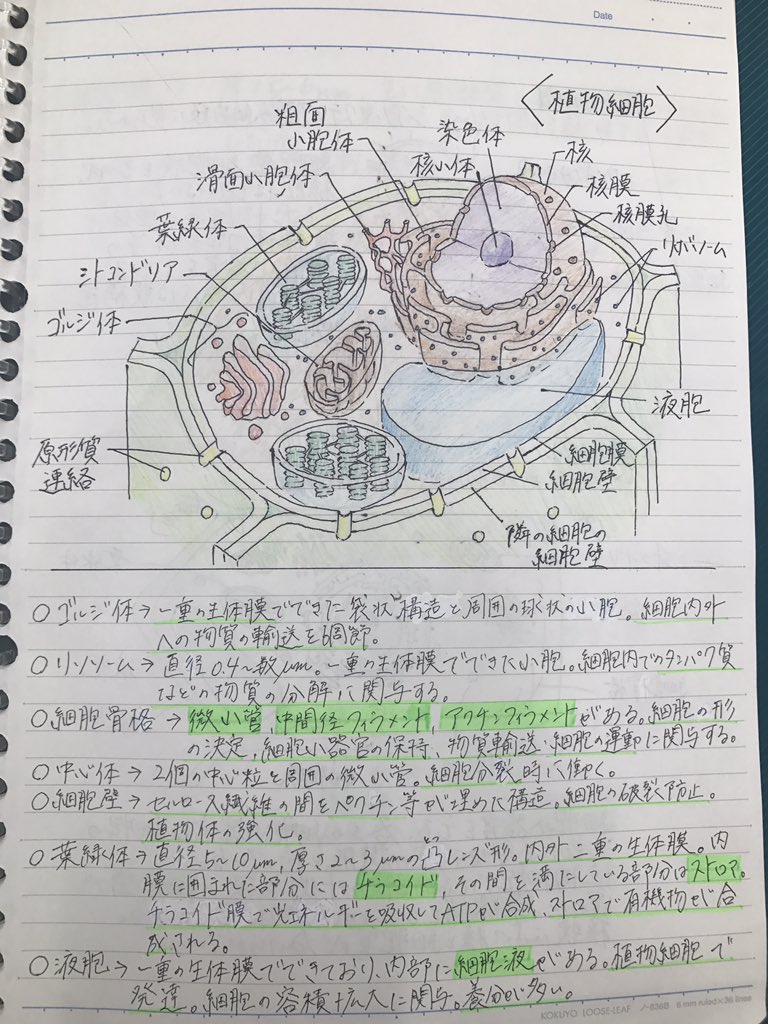 Date
〈植物細胞〉
粗面
小胞体
染色体
核小体
核
滑面小胞体
核膜
核膜孔
葉緑体
リボソーム
ミトコンドリア
ゴルジ体
液胞
原形質
連絡
細胞膜
細胞壁
隣の細胞の
細胞壁
○ゴルジ体→一重の生体膜でできた袋状構造と周囲の球状の小胞。細胞内外
への物質の輸送を調節。
○リソソーム→直径0.4~数μm。一重の生体膜でできた小胞。細胞内でのタンパク質
などの物質の分解に関与する。
○細胞骨格→微小管、中間径フィラメント、アクチンフィラメントがある。細胞の形
の決定、細胞小器官の保持、物質輸送、細胞の運動に関与する。
○中心体→2個の中心粒と周囲の微小管。細胞分裂時に働く。
○細胞壁→セルロース繊維の間をペクチン等が埋めた構造。細胞の破裂防止。
植物体の強化。
○葉緑体→直径5~10μm, 厚さ2~3μmの凸レンズ形。内外二重の生体膜。内
膜に囲まれた部分にはチラコイド、その間を満たしている部分はストロマ。
チラコイド膜で光エネルギーを吸収してATPが合成、ストロマで有機物が合
成される。
○液胞→一重の生体膜でできており、内部に細胞液がある。植物細胞で
発達。細胞の容積拡大に関与。養分が多い。
KOKUYO LOOSE-LEAF ノ-836B 6 mm ruled×36 lines